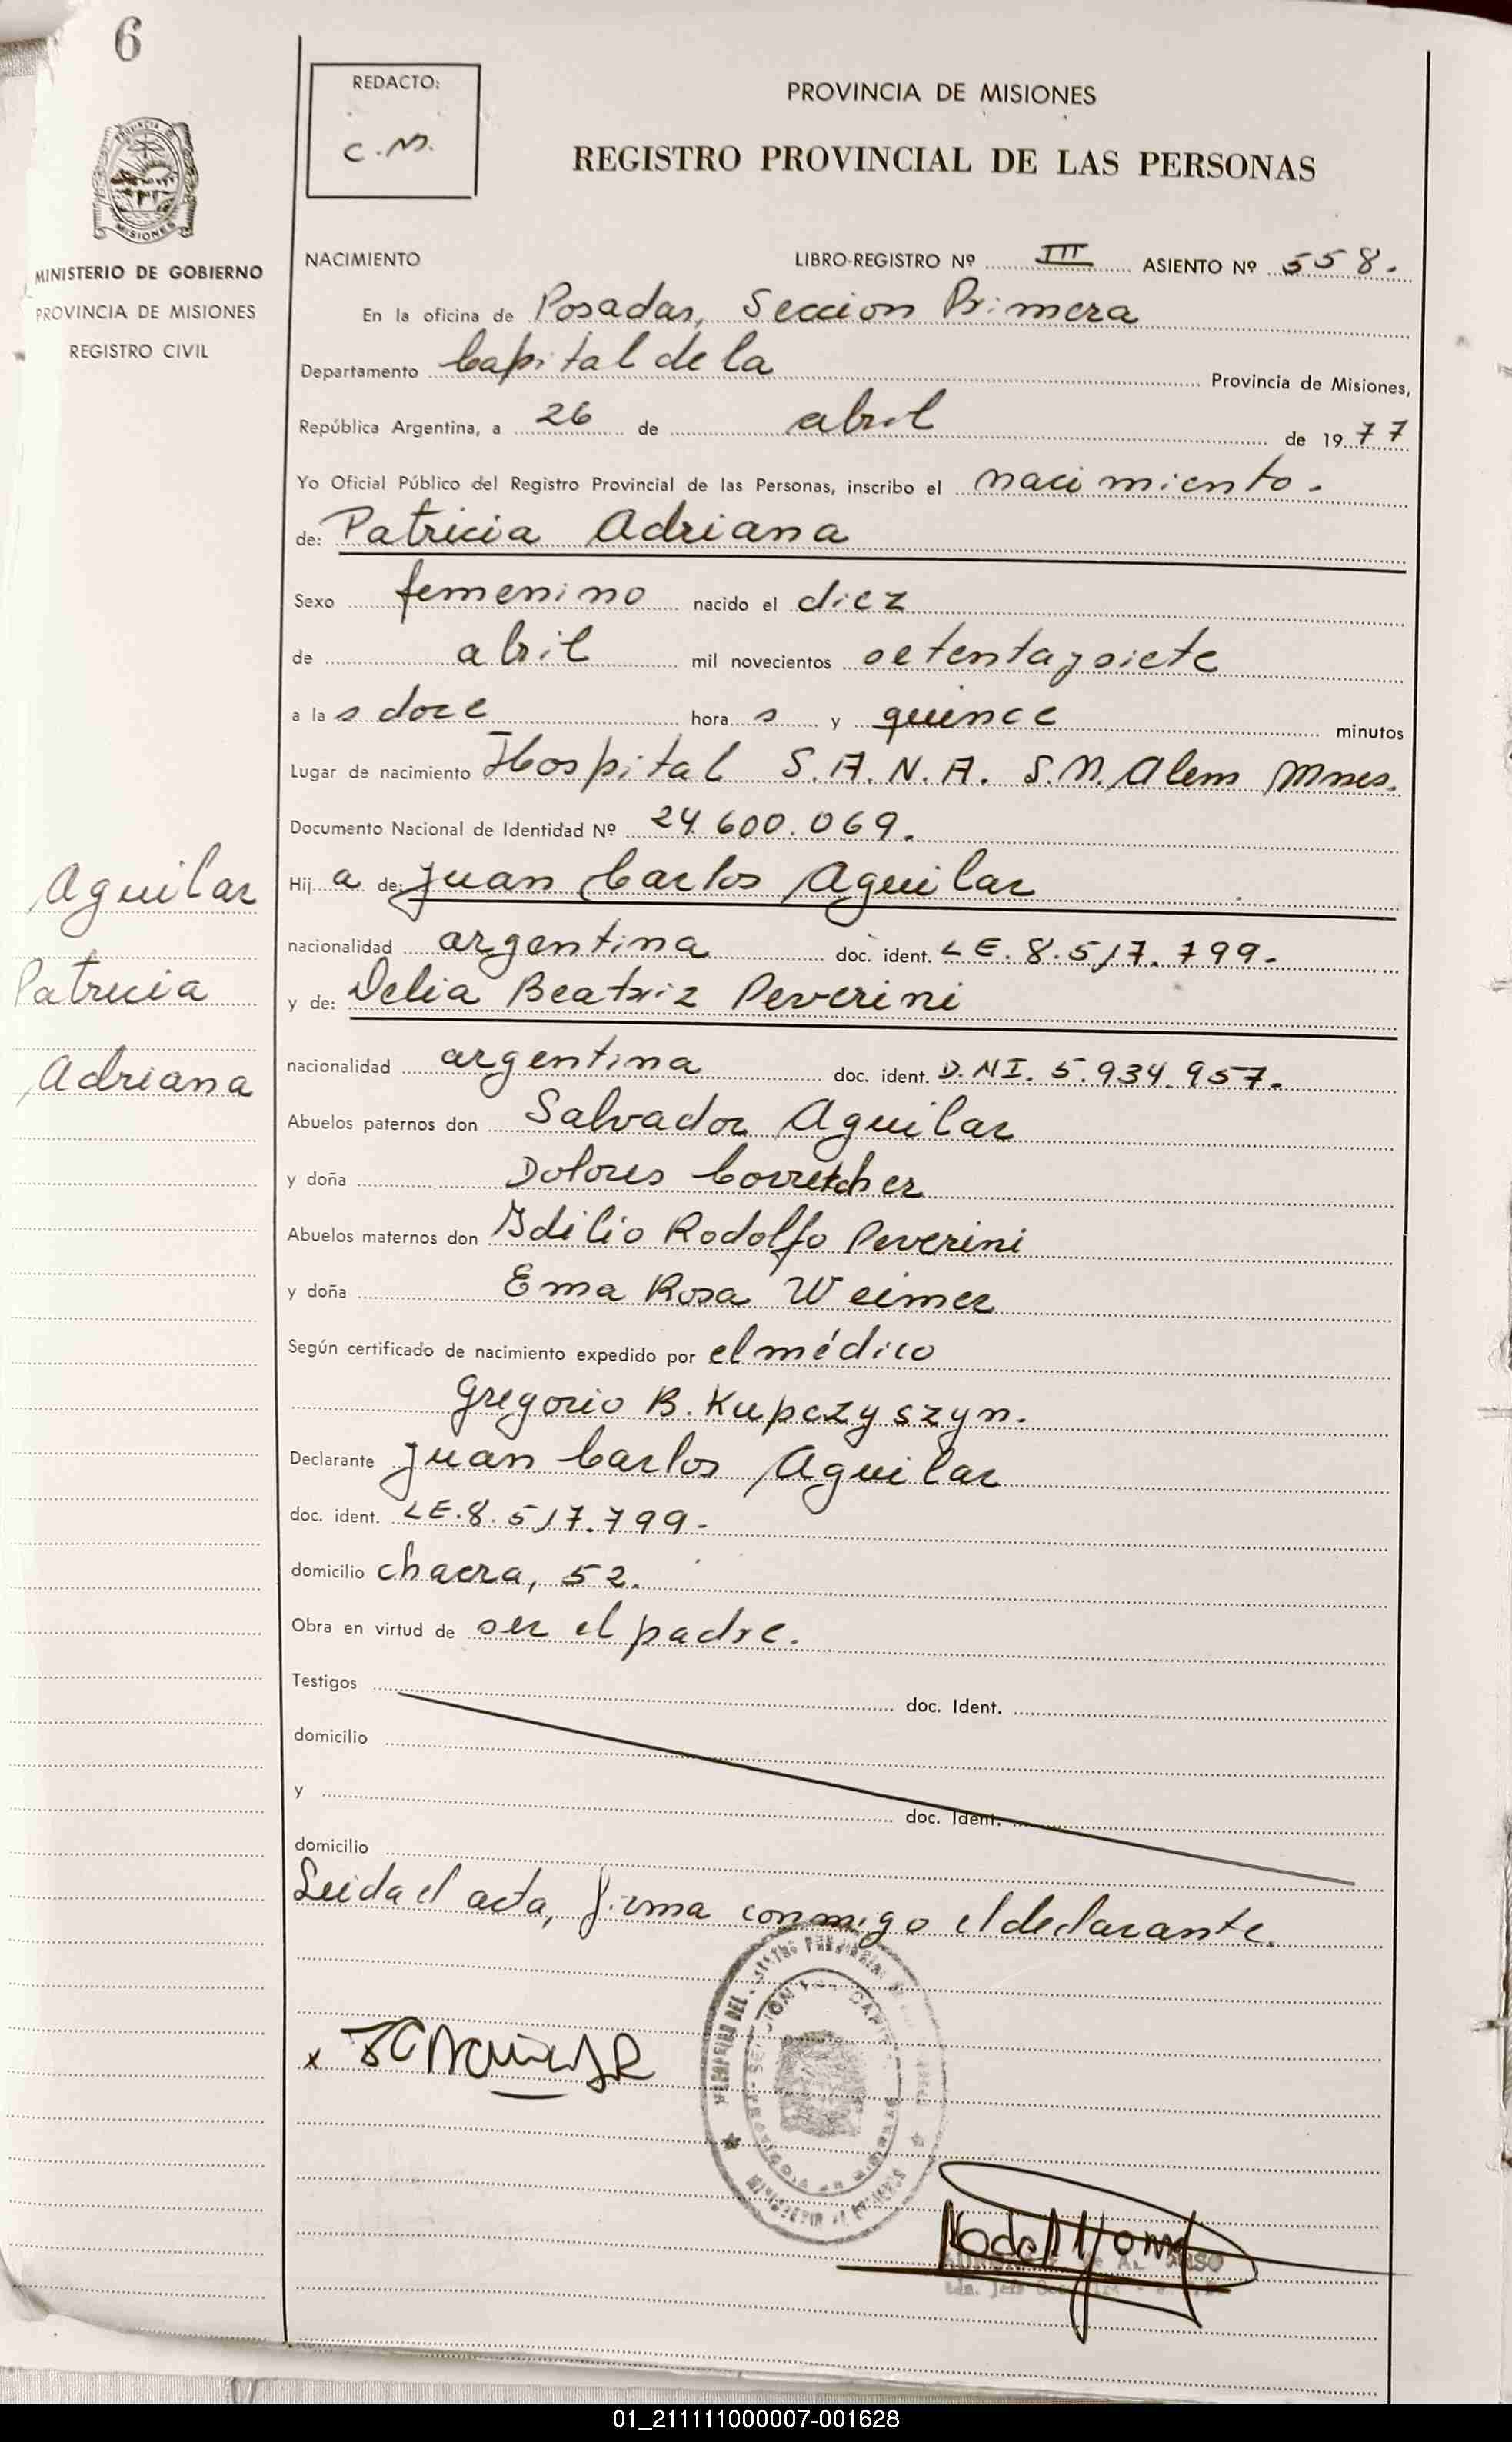 6
REDACTO:
C.M.
PROVINCIA DE MISIONES
REGISTRO PROVINCIAL DE LAS PERSONAS
MISIONES
MINISTERIO DE GOBIERNO
PROVINCIA DE MISIONES
REGISTRO CIVIL
NACIMIENTO LIBRO-REGISTRO Nº III ASIENTO Nº 558.
En la oficina de Posadas, Seccion Primera
Departamento Capital de la Provincia de Misiones,
República Argentina, a 26 de abril de 1977
Yo Oficial Público del Registro Provincial de las Personas, inscribo el nacimiento.
de: Patricia Adriana
Sexo femenino nacido el diez
de abril mil novecientos setenta y siete
a la s doce hora s y quince minutos
Lugar de nacimiento Hospital S.A.N.A. S.N. Alem Mnes.
Documento Nacional de Identidad Nº 24.600.069.
Aguilar
Hij a de: Juan Carlos Aguilar
nacionalidad argentina doc. ident. LE. 8.517.799.
Patricia
y de: Delia Beatriz Peverini
Adriana
nacionalidad argentina doc. ident. D.NI. 5.934.957.
Abuelos paternos don Salvador Aguilar
y doña Dolores Corretcher
Abuelos maternos don Idilio Rodolfo Peverini
y doña Ema Rosa Weimer
Según certificado de nacimiento expedido por el médico
Gregorio B. Kupczyszyn.
Declarante Juan Carlos Aguilar
doc. ident. LE.8.517.799.
domicilio chacra, 52.
Obra en virtud de ser el padre.
Testigos doc. Ident.
domicilio
y doc. Ident.
domicilio
Leida el acta, firma conmigo el declarante.
x JC Aguilar